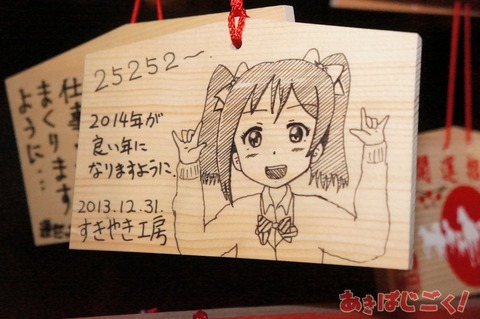 25252~
2014年が
良い年に
なりますように
2013.12.31.
すきやき工房
仕事
まくります
ように…
開運
あきばじごく!